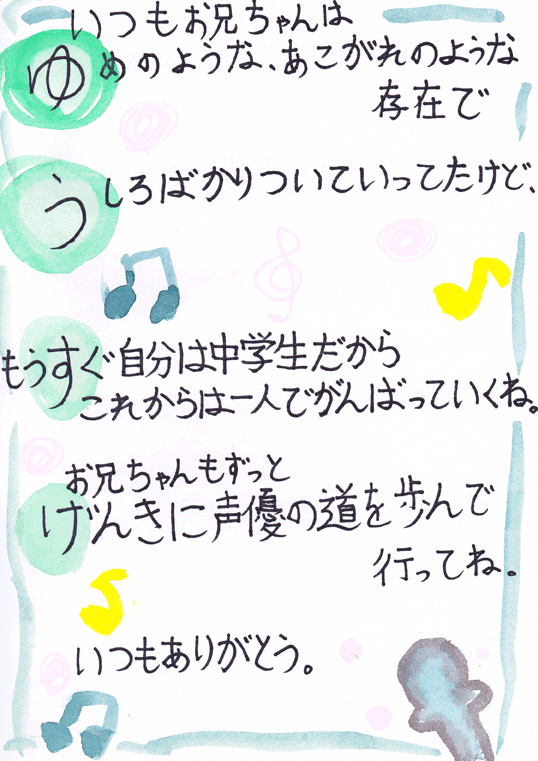 いつもお兄ちゃんは
ゆめのような、あこがれのような
存在で
うしろばかりついていってたけど、
もうすぐ自分は中学生だから
これからは一人でがんばっていくね。
お兄ちゃんもずっと
げんきに声優の道を歩んで
行ってね。
いつもありがとう。